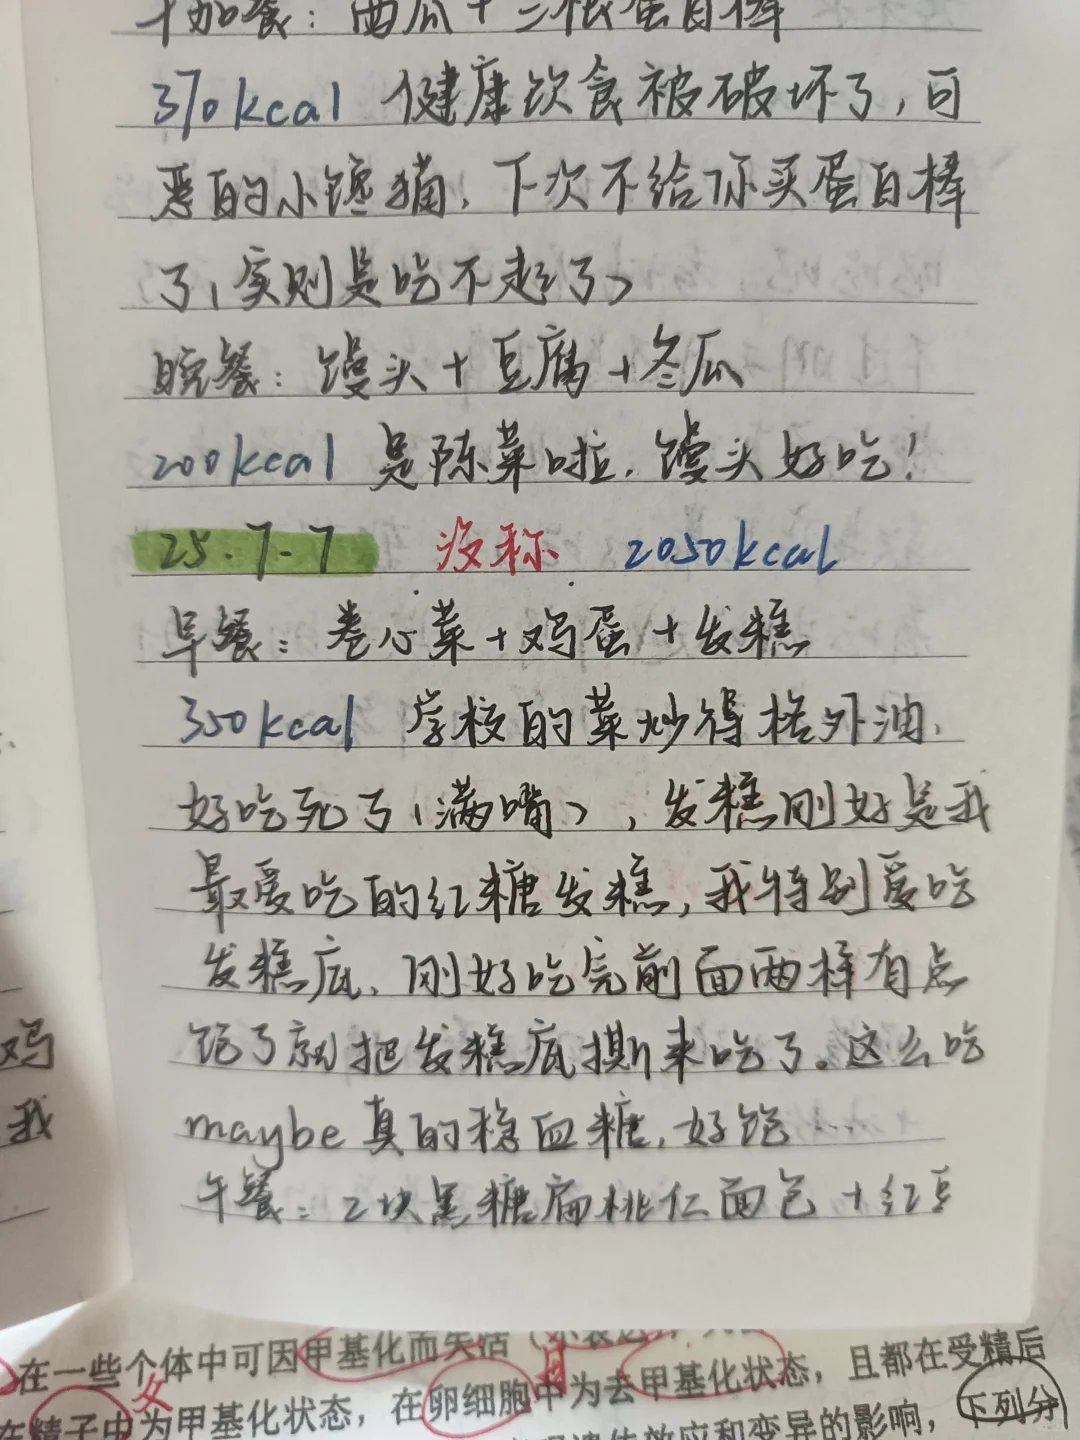 加餐：西瓜+三根蛋白棒
370kcal 健康饮食被破坏了，可
恶的小馋猫，下次不给你买蛋白棒
了（实则是吃不起了）
晚餐：馒头+豆腐+冬瓜
200kcal 是陈菜啦，馒头好吃！
25.7.7 没称 2050kcal
早餐：卷心菜+鸡蛋+发糕
350kcal 学校的菜炒得格外油，
好吃死了（满嘴），发糕刚好是我
最爱吃的红糖发糕，我特别爱吃
发糕底，刚好吃完前面两样有点
饱了就把发糕底撕来吃了。这么吃
maybe真的稳血糖，好饱...
午餐：2块黑糖扁桃仁面包+红豆
鸡
我
在一些个体中可因甲基化而失活（
女
在精子中为甲基化状态，在卵细胞中为去甲基化状态，且都在受精后
遗传效应和变异的影响，下列分